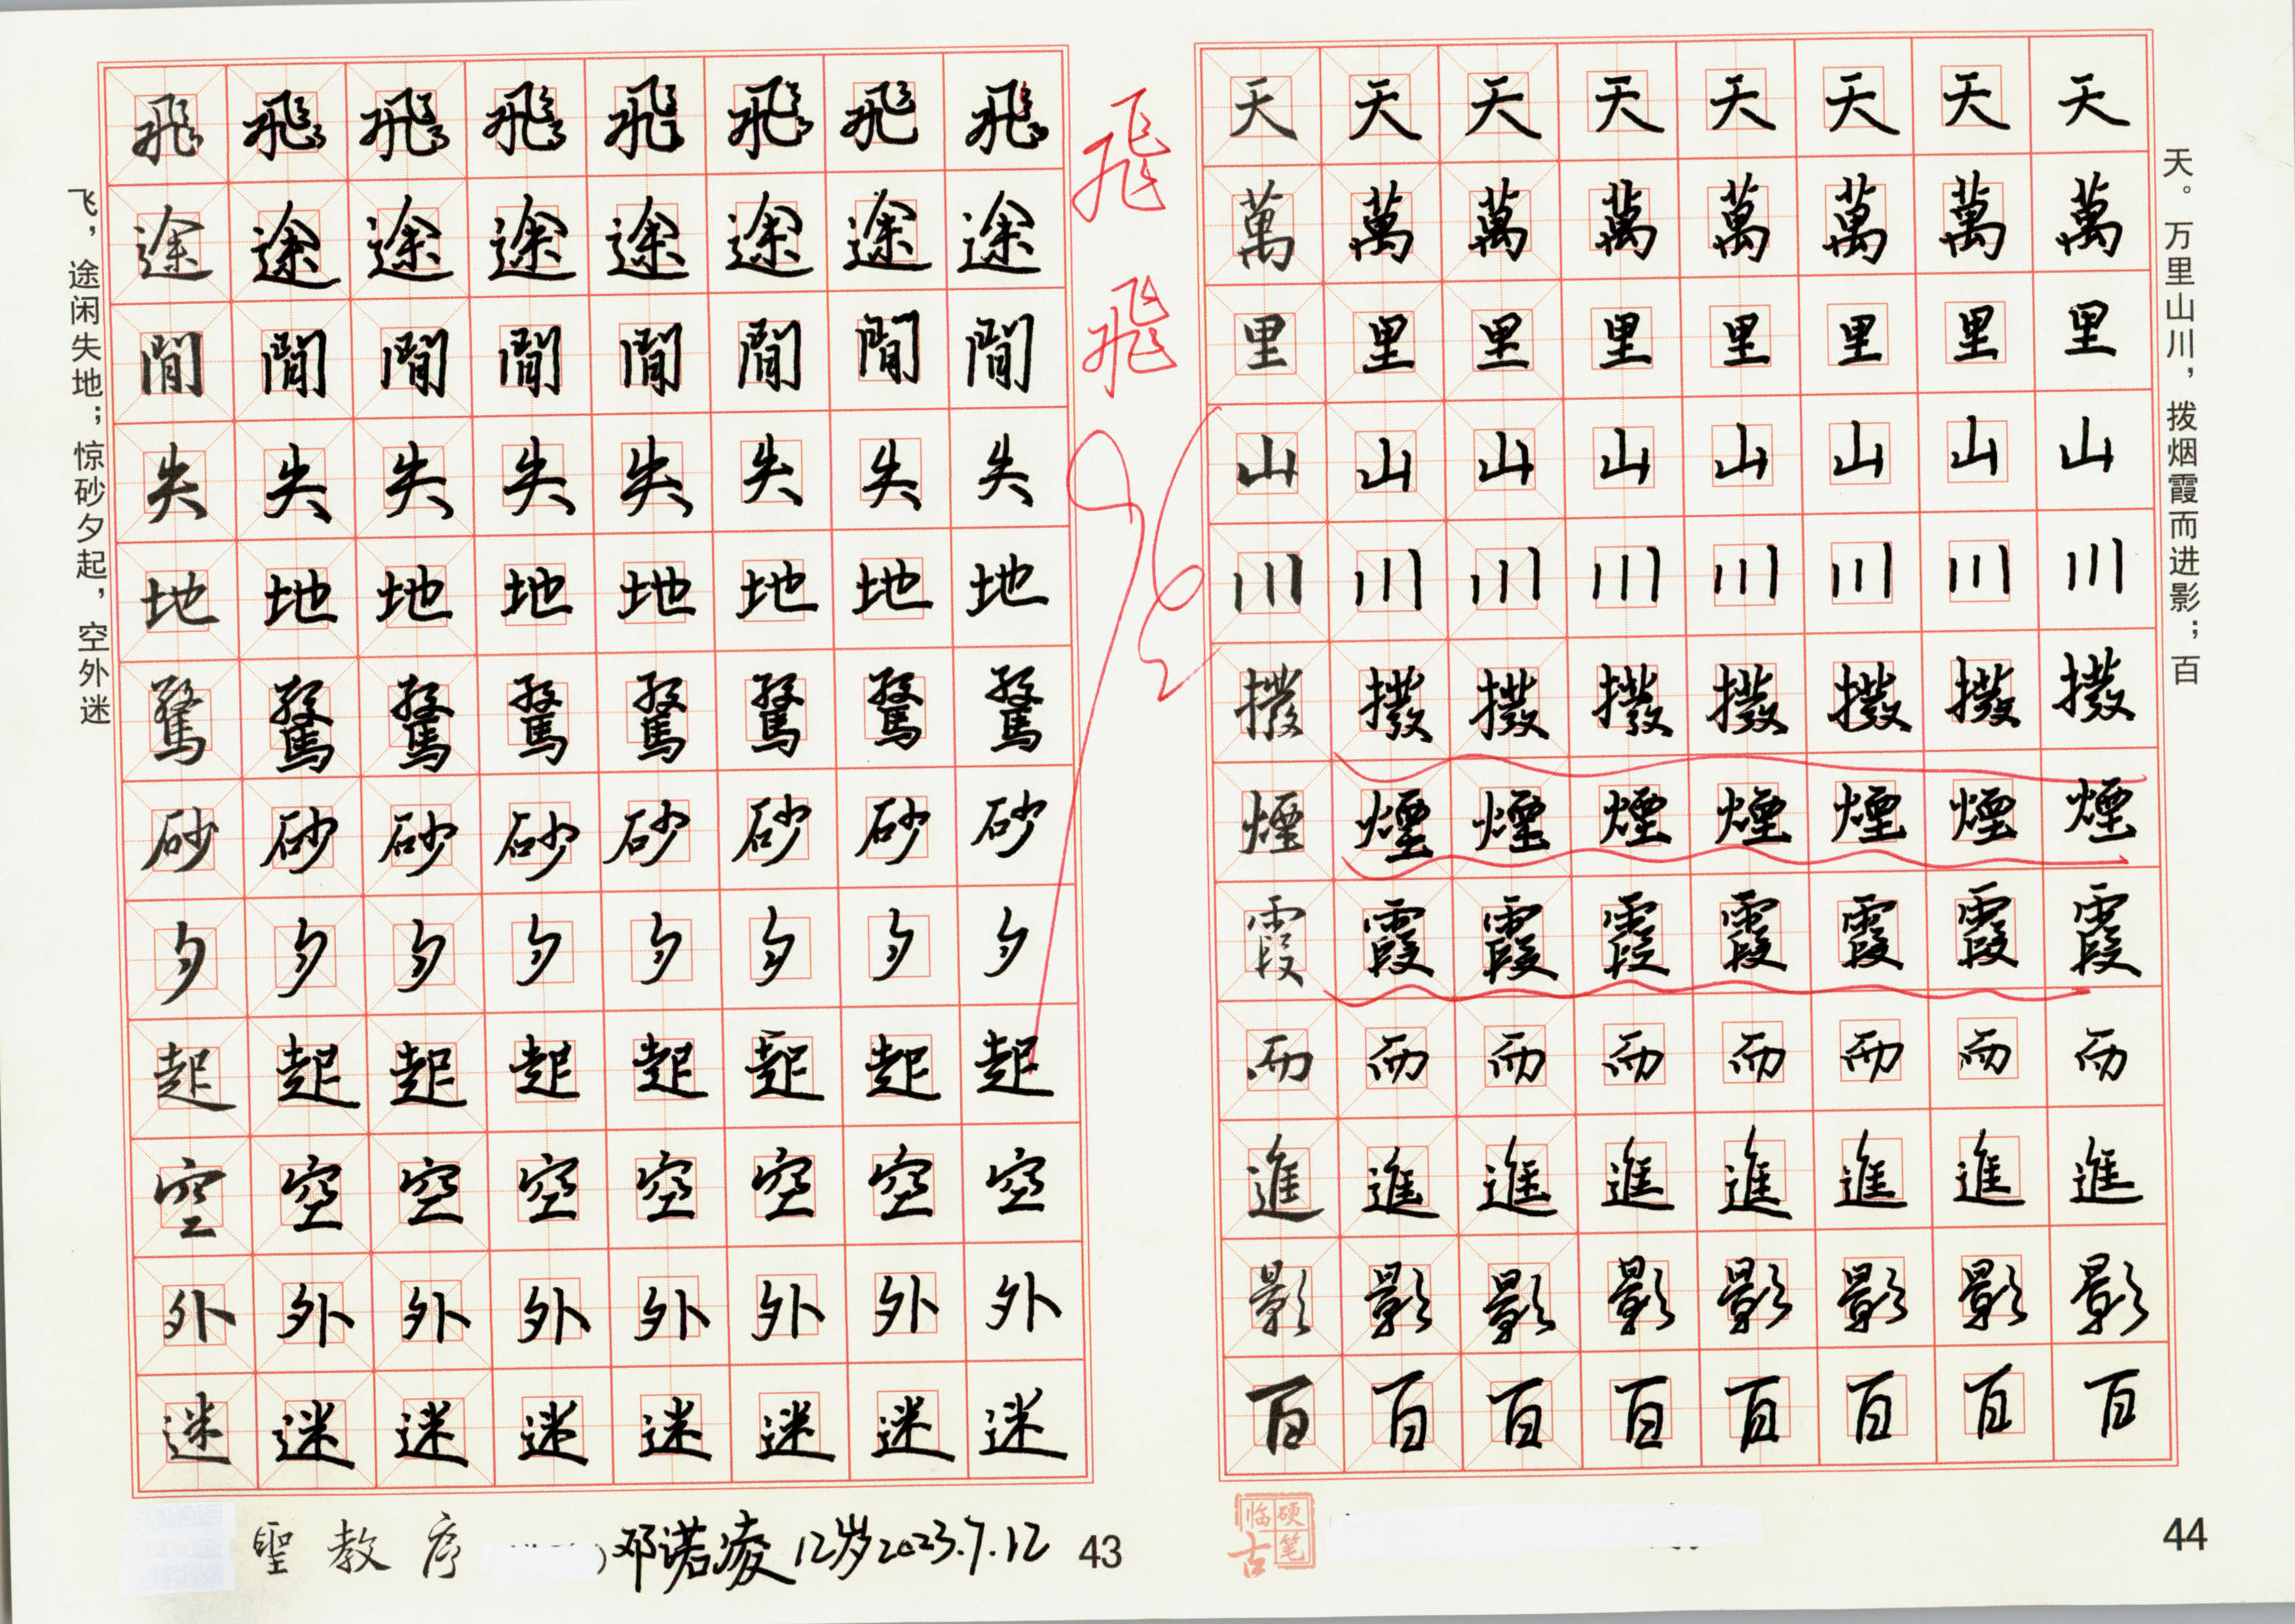 飛飛飛飛飛飛飛飛
途途途途途途途途
閒閒閒閒閒閒閒閒
失失失失失失失失
地地地地地地地地
驚驚驚驚驚驚驚驚
砂砂砂砂砂砂砂砂
夕夕夕夕夕夕夕夕
起起起起起起起起
空空空空空空空空
外外外外外外外外
迷迷迷迷迷迷迷迷
飞，途闲失地；惊砂夕起，空外迷
聖教序
邓诺凌12岁2023.7.12
43
飛
飛
96
天天天天天天天天
萬萬萬萬萬萬萬萬
里里里里里里里里
山山山山山山山山
川川川川川川川川
撥撥撥撥撥撥撥撥
煙煙煙煙煙煙煙煙
霞霞霞霞霞霞霞霞
而而而而而而而而
進進進進進進進進
影影影影影影影影
百百百百百百百百
天。万里山川，拨烟霞而进影；百
硬笔临古
44